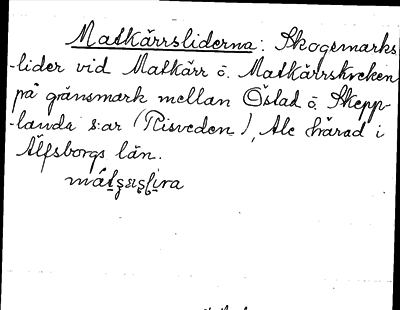 Matkärrsliderna: Skogsmarks
-lider vid Matkärr o. Matkärrskreken
på gränsmark mellan Östad o. Skepp-
-landa s:ar (Risveden), Ale härad i
Älfsborgs län.